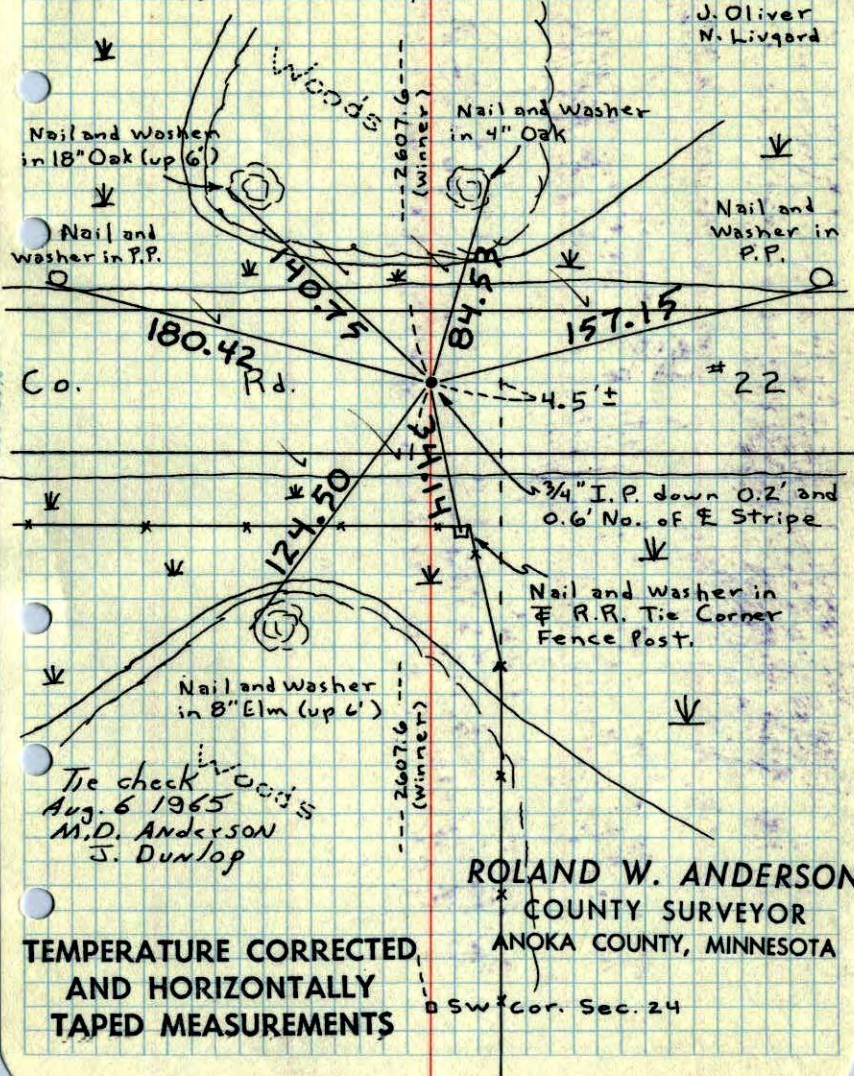 J. Oliver
N. Livgard
Woods
---2607.6----
(Winner)
Nail and Washer
in 4" Oak
Nail and Washer
in 18" Oak (up 6')
Nail and
Washer in
P.P.
Nail and
Washer in P.P.
140.75
84.53
180.42
157.15
Co. Rd. #22
4.5'±
34.14
124.50
3/4" I.P. down 0.2' and
0.6' No. of ℄ Stripe
Nail and Washer in
℄ R.R. Tie Corner
Fence Post.
Nail and Washer
in 8" Elm (up 6')
--- 2607.6 ---
(Winner)
Woods
Tie check
Aug. 6 1965
M.D. Anderson
J. Dunlop
ROLAND W. ANDERSON
COUNTY SURVEYOR
ANOKA COUNTY, MINNESOTA
TEMPERATURE CORRECTED
AND HORIZONTALLY
TAPED MEASUREMENTS
SW Cor. Sec. 24